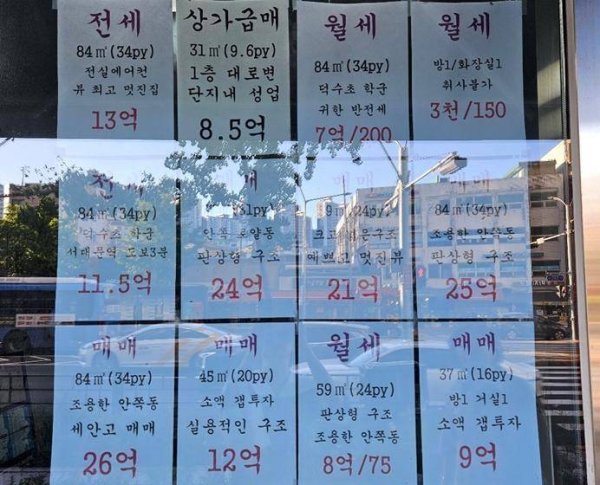 전세
84㎡(34py)
전실에어컨
뷰 최고 멋진집
13억
상가급매
31㎡(9.6py)
1층 대로변
단지내 성업
8.5억
월세
84㎡(34py)
덕수초 학군
귀한 반전세
7억/200
월세
방1/화장실1
취사불가
3천/150
전세
84㎡(34py)
덕수초 학군
서대문역 도보3분
11.5억
매
안쪽 로얄동
판상형 구조
24억
매매
(24py)
구조
예쁘고 멋진뷰
21억
매매
84㎡(34py)
조용한 안쪽동
판상형 구조
25억
매매
84㎡(34py)
조용한 안쪽동
세안고 매매
26억
매매
45㎡(20py)
소액 갭투자
실용적인 구조
12억
월세
59㎡(24py)
판상형 구조
조용한 안쪽동
8억/75
매매
37㎡(16py)
방1 거실1
소액 갭투자
9억